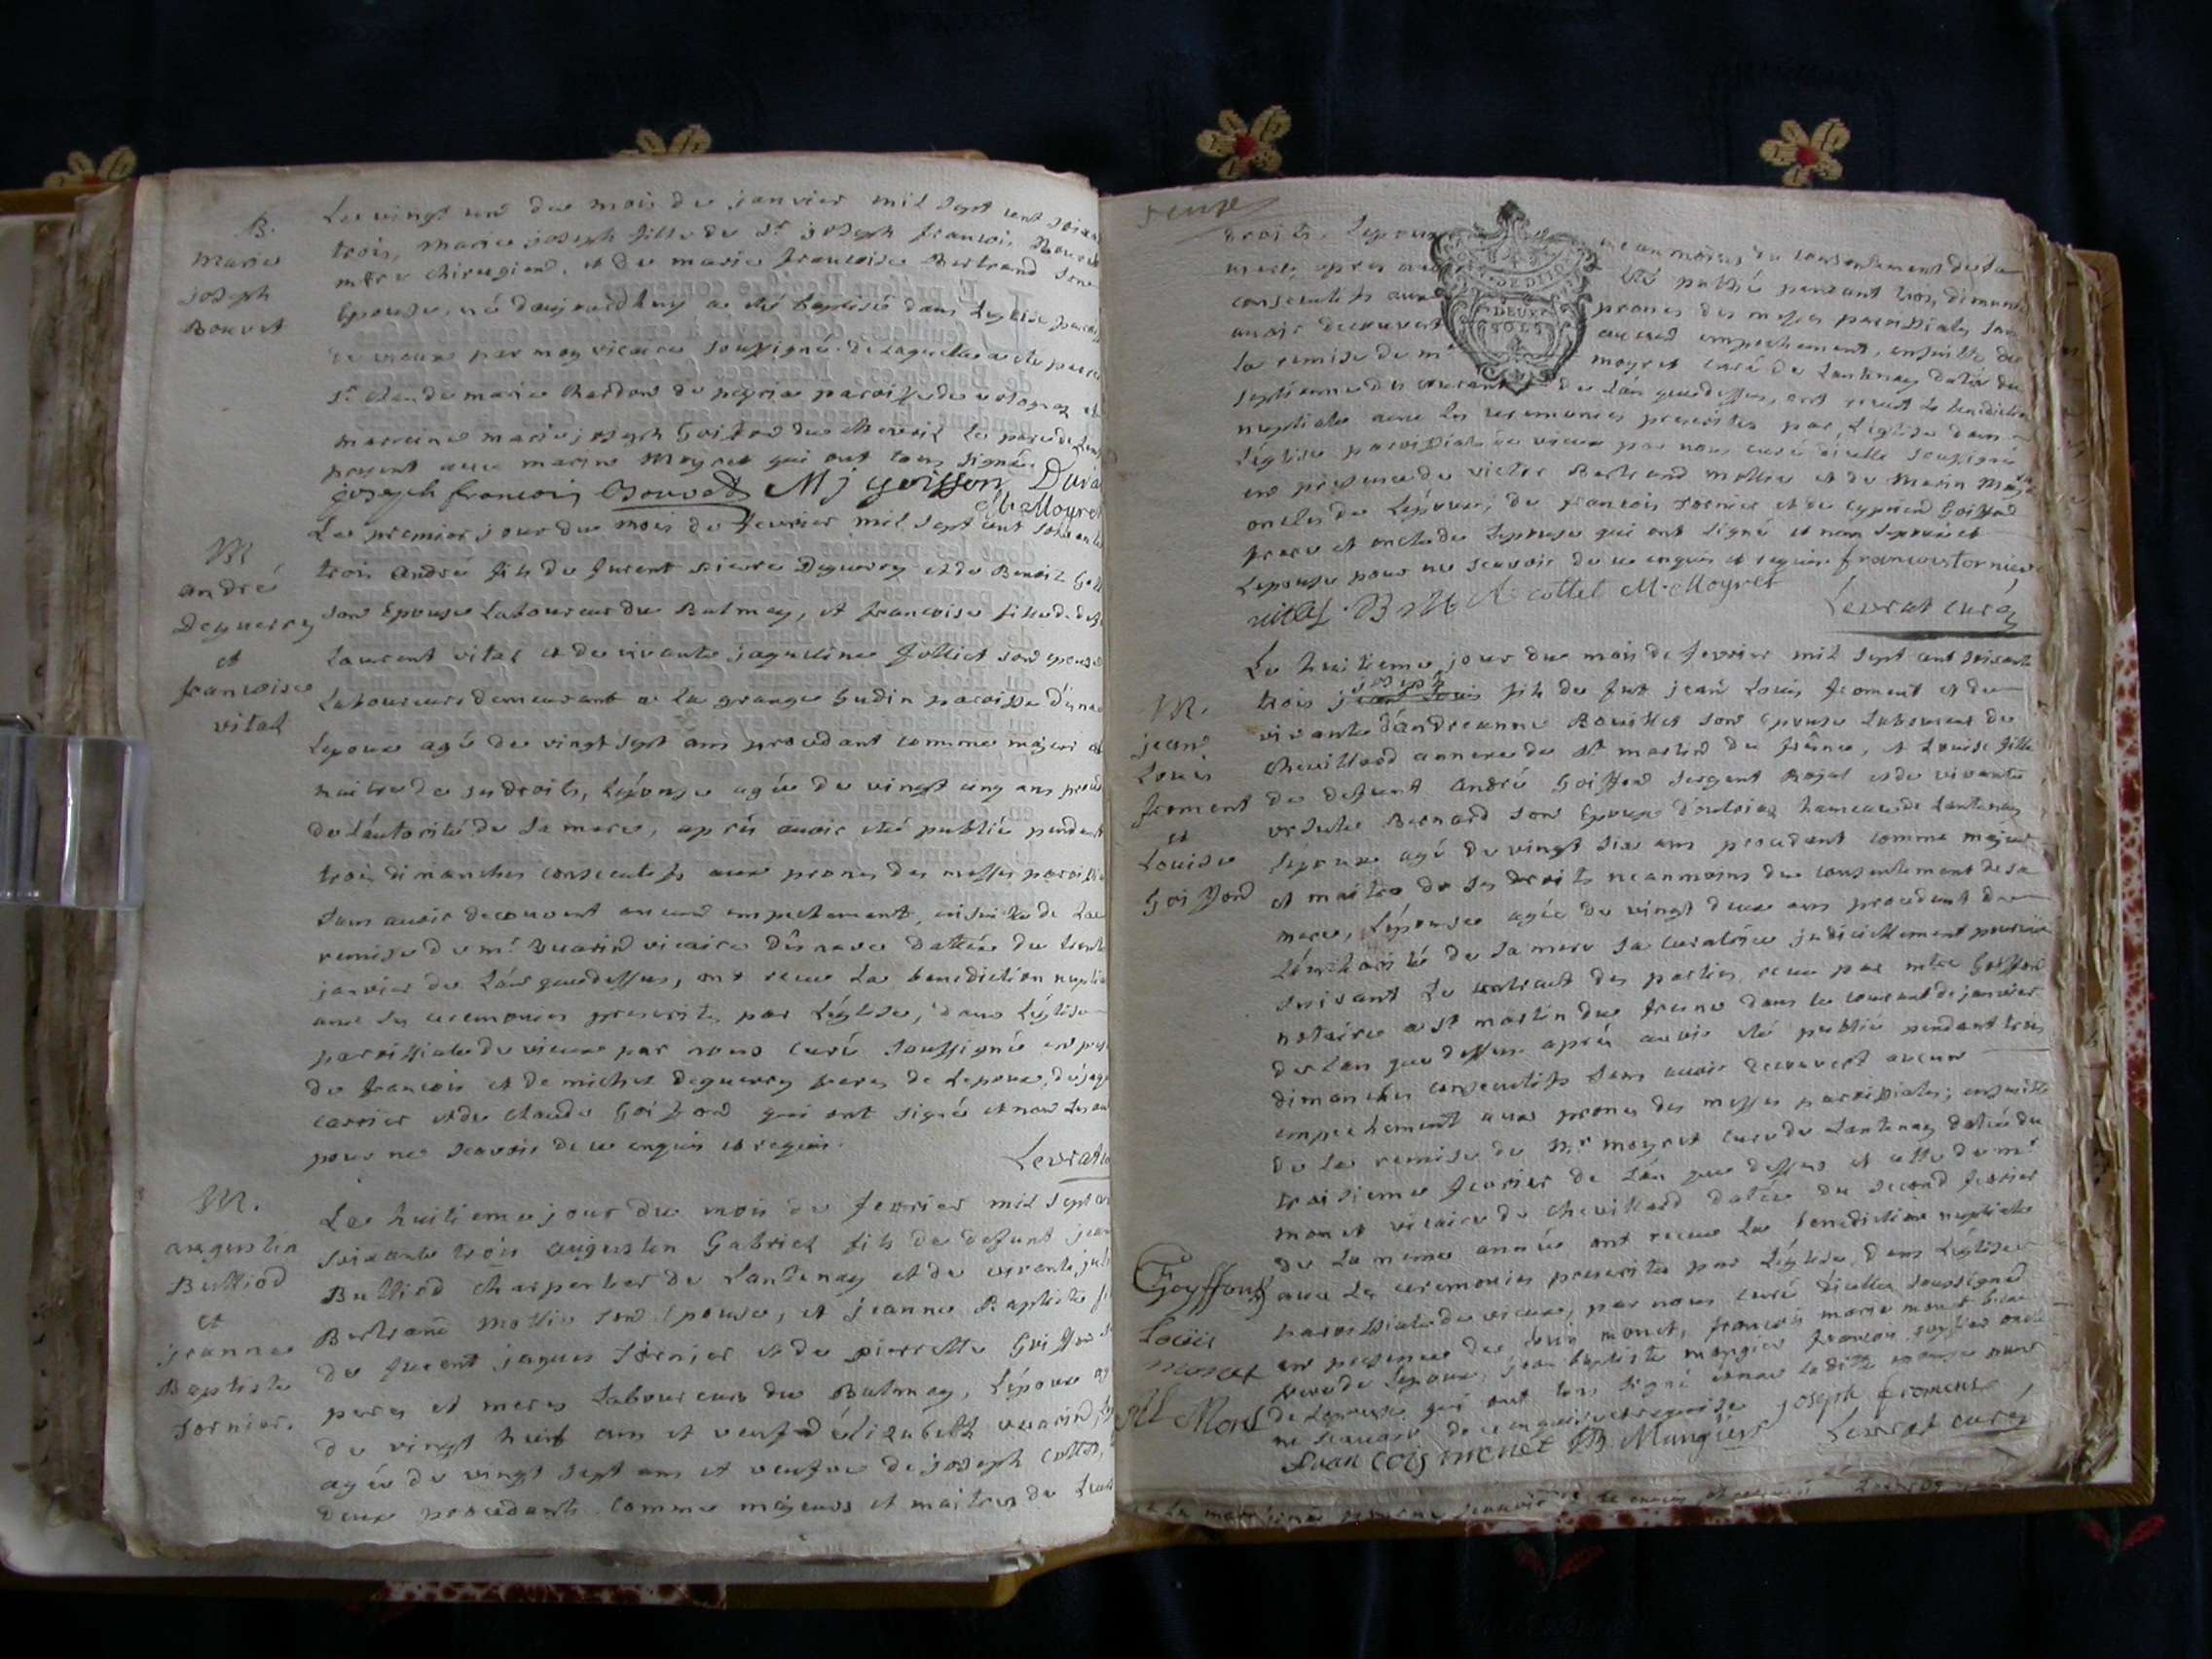 B.
Marie
joseph
Bouvet
Le vingt un du mois de janvier mil sept cent soixan
trois, marie joseph fille de Sr joseph francois Bouvet
mtre chirugiend, et de marie francoise Bertrand son
Epouse, né daujourdhuy a été baptisée dans Leglise parois
de vieux par moy vicaire soussigné
Sr claude marie Chardon de paroisse de
marraine marie joseph Goiffon du Chevril Le pere de Lenf
present avec marin Moyret qui ont tous signé
joseph francois Bouvet M j goiffon
M. Moyret
M
andré
Deguerry
et
francoise
vital
Le premier jour du mois de fevrier mil sept cent soixante
trois andré fils de furent pierre Deguerry et de Benoite
son Epouse Laboureur du Balmay, et francoise fille de def
Laurent vital et de vivante jaqueline Jolliet son epouse
Laboureurs demeurant a la grange Gudin paroisse d'isnav
Lepoux agé de vingt sept ans procedant comme majeur et
maitre de ses droits, Lépouse agée de vingt cinq ans proced
de Láutorité de sa mere, aprés avoir été publié pendant
trois dimanches consecutifs aux prones des messes paroissi
sans avoir decouvert aucun empechement, ensuitte de La
remise de mr vuarin vicaire disnave dattée du trente
janvier de Lán que dessus, ont recue La benediction nuptia
avec Les ceremonies prescrites par Léglise, dans Léglise
paroissiale de vieux par nous curé soussigné en pres
de francois et de michel deguerry freres de Lepoux, de jaq
carrier et de claude Goiffond qui ont signé et non Les
pour ne scavoir de ce enquis et requis.
Levrat
M.
augustin
Bulliod
et
jeanne
Baptiste
Tornier.
Le huitieme jour du mois de fevrier mil sept
soixante trois augusten Gabriel fils de defunt jean
Bulliod charpentier de Lantenay et de vivante
Bertrand Mollie son Epouse, et jeanne Baptiste fi
de furent jaques Tornier et de pierrette Goiffon
peres et meres Laboureurs du Balmay, Lépoux ag
de vingt huit ans et veuf d'élizabeth vuarin,
agée de vingt sept ans et veufve de joseph
deux procedants comme majeurs et maitres de Leurs
droits, Lepoux neanmoins du consentement de sa
mere, apres avoir été publié pendant trois dimanches
consecutifs aux prones des messes paroissiales sans
avoir decouvert aucun empechement, ensuitte de
la remise de mr moyret curé de Lantenay datée du
septieme du courant de Lán que dessus, ont recut La benediction
nuptiale avec Les ceremonies prescrites par Léglise dans
Léglise paroissiale de vieux par nous curé dicelle soussigné
en presence de victor Bertrand mollie et de marin Moyret
oncles de Lépoux, de francois Tornier et de cyprien Goiffon
frere et oncle de Lepouse qui ont signé et non Lepoux et
Lepouse pour ne scavoir de ce enquis et requis. francois tornier
cottet M. Moyret
Levrat curé
DE DIJON
DEUX
SOLS
M.
jean
Louis
froment
et
Louise
Goiffon
Le huitieme jour du mois de fevrier mil sept cent soixante
joseph
trois jean Louis fils de fut jean Louis froment et de
vivante dándreanne Bouillet son Epouse Laboureur de
Chevillard annexe de St martin du frêne, et Louise fille
de defunt andré Goiffon sergent Royal et de vivante
ursule Bernard son Epouse hameau de Lantenay
Lépoux agé de vingt six ans procedant comme majeur
et maitre de ses droits neanmoins du consentement de sa
mere, Lépouse agée de vingt deux ans procedant de
Láuthorité de sa mere sa curatrice judiciellement pourvue
suivant Le contract des parties, receu par mtre Goiffon
notaire a St martin du frene dans le courant de janvier
de Lan que dessus aprés avoir été publié pendant trois
dimanches consecutifs sans avoir decouvert aucun
empechement aux prones des messes paroissiales; ensuitte
de La remise de Mr moyret curé de Lantenay datée du
troisieme fevrier de Lán que dessus et celle de mr
monet vicaire de Chevillard datée du second fevrier
de La meme année ont recue La benediction nuptiale
avec Les ceremonies prescrites par Léglise, dans Léglise
paroissiale de vieux, par nous curé dicelle soussigné
en presence de Louis monet, francois marie monet beau
frere de Lepoux, jean baptiste mangier francois oncle
de Lepouse qui ont tous signé et non ladite epouse pour
ne scavoir de ce enquise et requise joseph froment
francois monet JB Mangier Levrat curé
Goyffon
Louis
monet